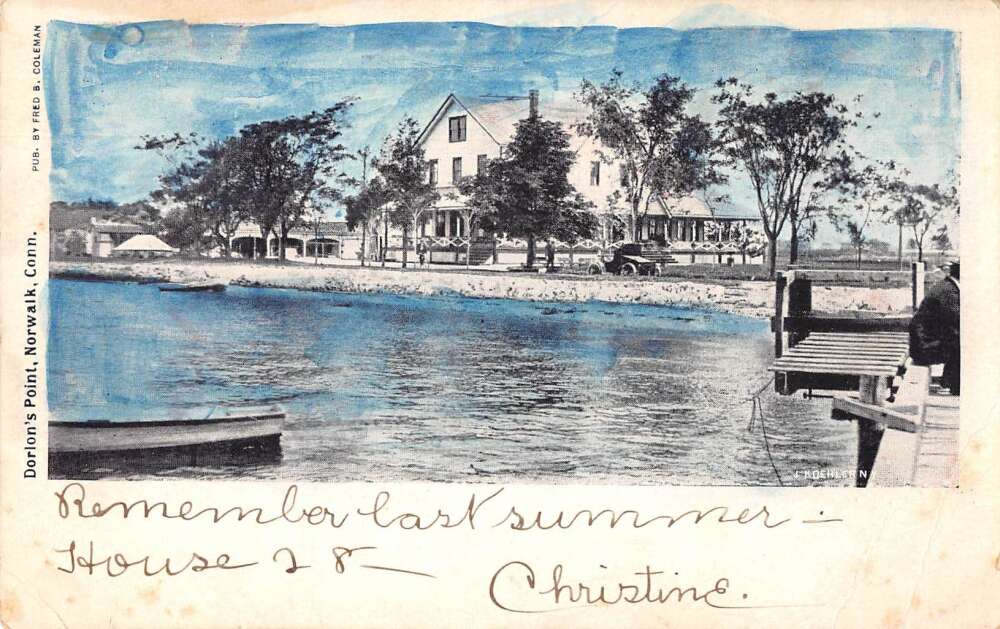 PUB. BY FRED B. COLEMAN
Dorlon's Point, Norwalk, Conn.
J. KOEHLER N
Remember last summer –
House 28 –
Christine.